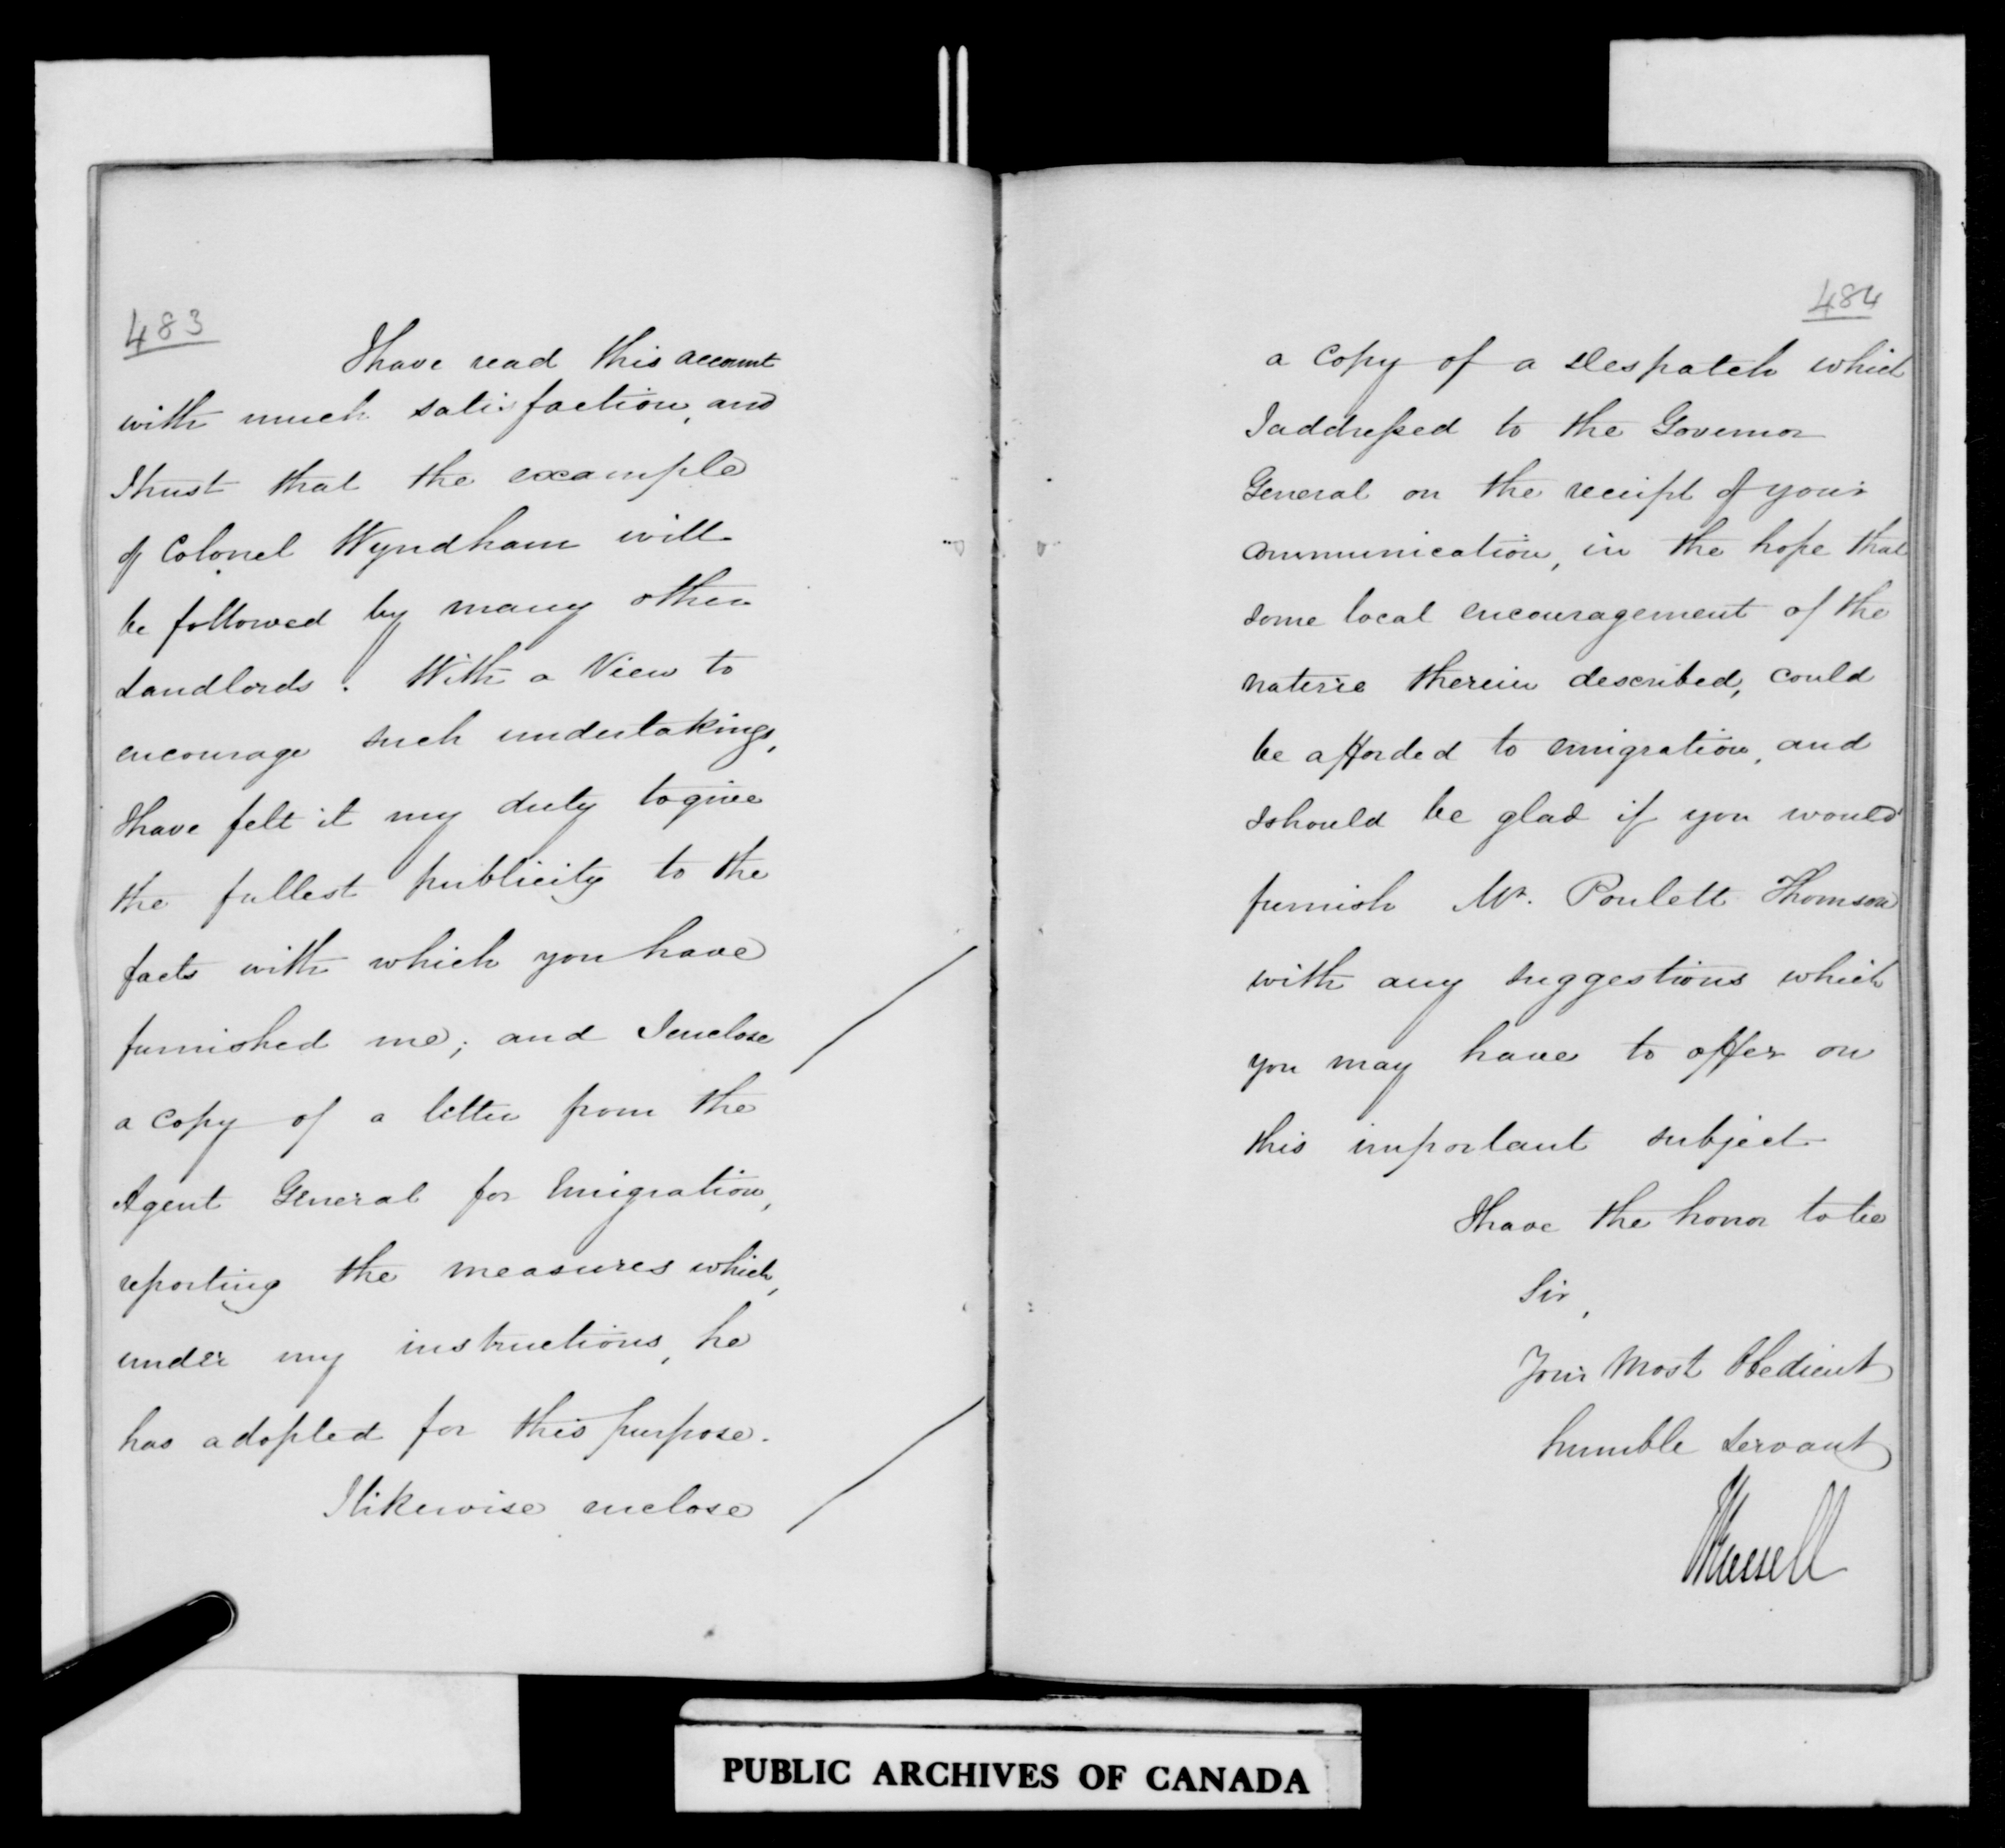 483
I have read this account
with much satisfaction, and
I trust that the example
of Colonel Wyndham will
be followed by many other
Landlords. With a View to
encourage such undertakings,
I have felt it my duty to give
the fullest publicity to the
facts with which you have
furnished me; and I enclose
a copy of a letter from the
Agent General for Emigration,
reporting the measures which,
under my instructions, he
has adopted for this purpose.
I likewise enclose
484
a Copy of a Despatch which
I addressed to the Governor
General on the receipt of your
communication, in the hope that
some local encouragement of the
nature therein described, could
be afforded to emigration, and
I should be glad if you would
furnish Mr. Poulett Thomson
with any suggestions which
you may have to offer on
this important subject
I have the honor to be
Sir,
Your Most Obedient
humble Servant
J Russell
PUBLIC ARCHIVES OF CANADA